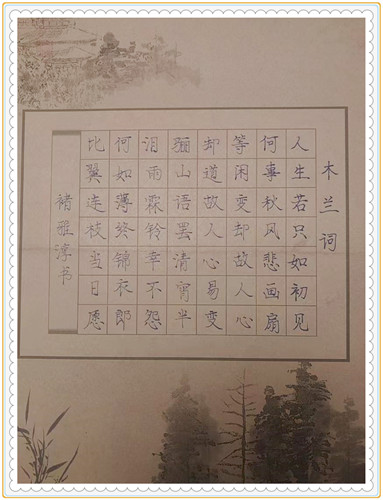 木兰词
人生若只如初见
何事秋风悲画扇
等闲变却故人心
却道故人心易变
骊山语罢清宵半
泪雨霖铃幸不怨
何如薄锦衣郎
比翼连枝当日愿
褚雅淳书